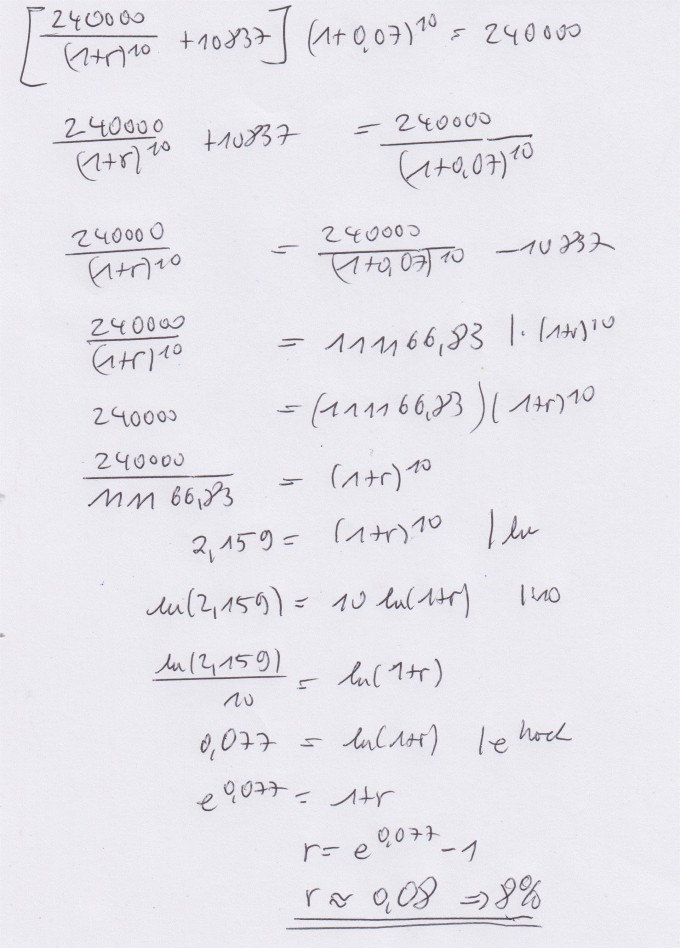 [240000/(1+r)^10 + 10837] (1+0,07)^10 = 240000
240000/(1+r)^10 + 10837 = 240000/(1+0,07)^10
240000/(1+r)^10 = 240000/(1+0,07)^10 - 10837
240000/(1+r)^10 = 111166,83 |· (1+r)^10
240000 = (111166,83)(1+r)^10
240000/111166,83 = (1+r)^10
2,159 = (1+r)^10 | ln
ln(2,159) = 10 ln(1+r) |:10
ln(2,159)/10 = ln(1+r)
0,077 = ln(1+r) | e hoch
e^0,077 = 1+r
r = e^0,077 - 1
r ≈ 0,08 ⇒ 8%